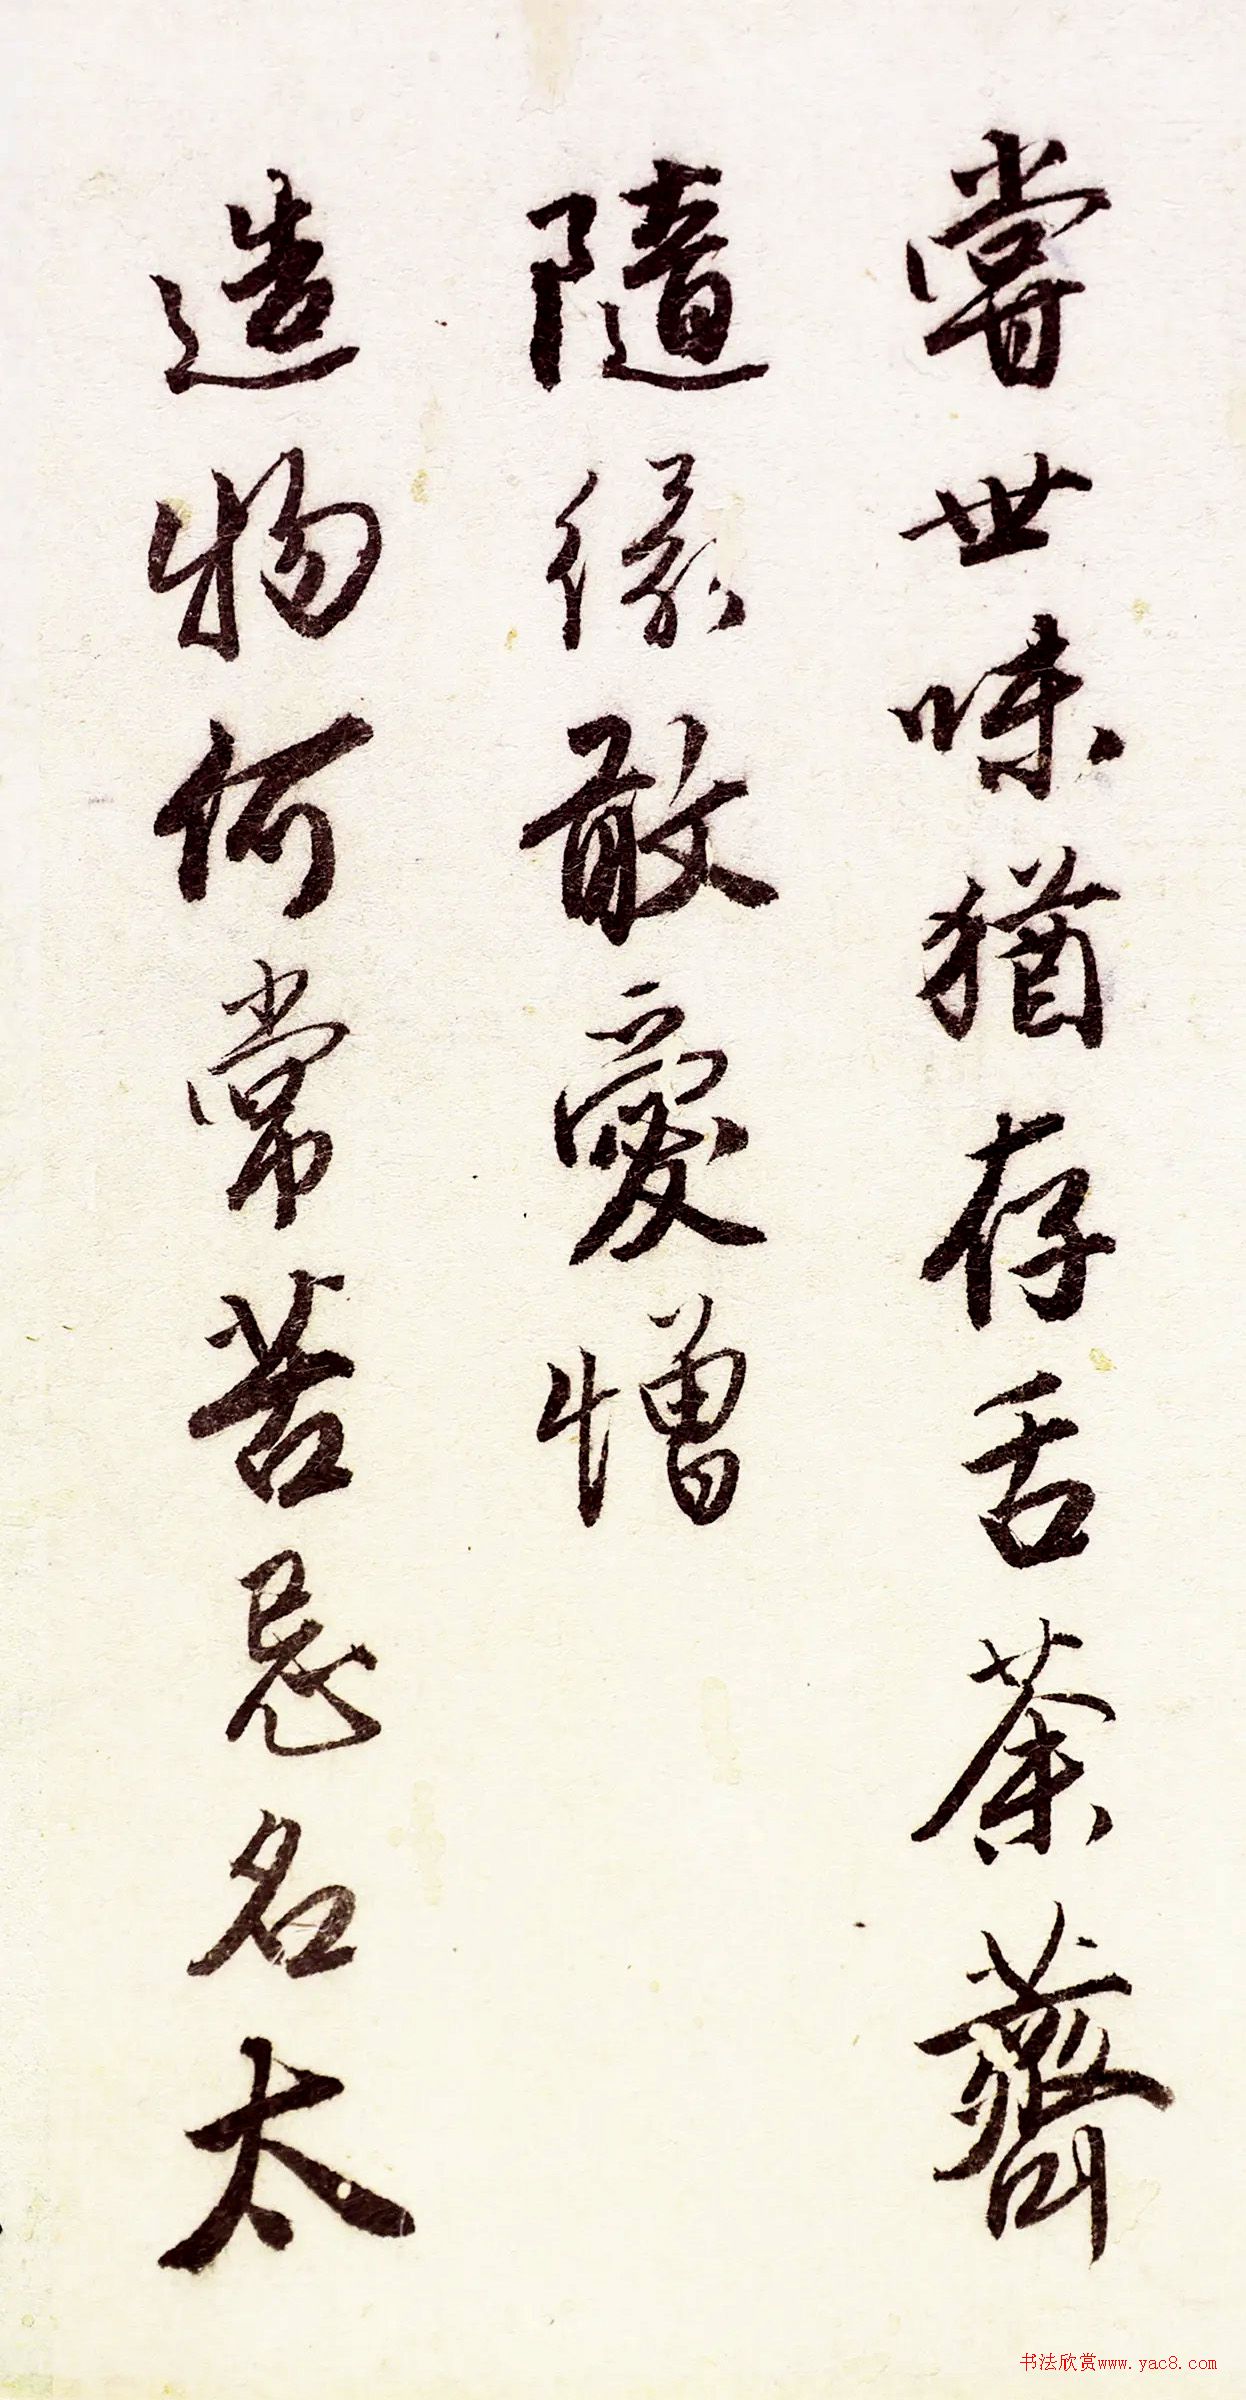 嘗世味猶存舌荼薺
隨緣敢愛憎
造物何常苦忌名太
书法欣赏www.yac8.com